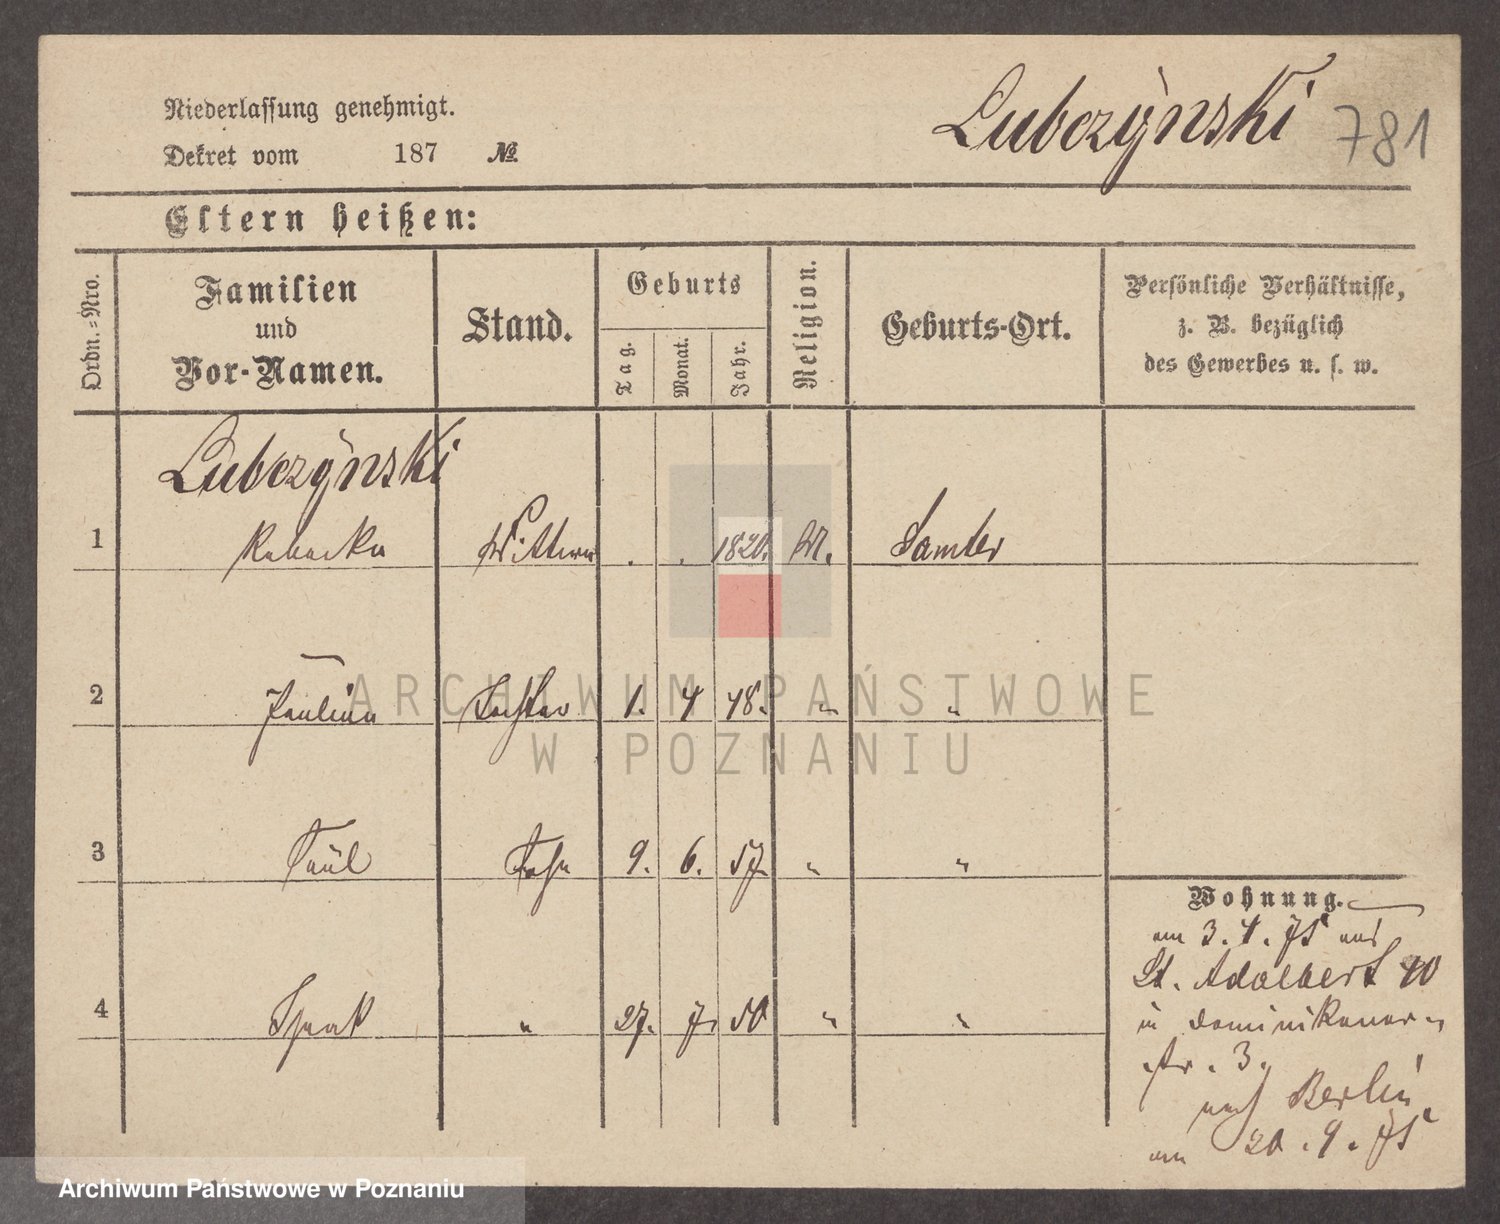 Niederlassung genehmigt.
Dekret vom 187 №
Lubczynski 781
Eltern heißen:
Ordn.-Nro.
Familien
und
Vor-Namen.
Stand.
Geburts
Tag.
Monat.
Jahr.
Religion.
Geburts-Ort.
Persönliche Verhältnisse,
z. B. bezüglich
des Gewerbes u. s. w.
Lubczynski
1 Rebecka Wittwe . . 1820. M. Samter
2 Pauline Tochter 1. 4 48. " "
3 Paul Sohn 9. 6. 57 " "
4 Isaak " 27. 7. 50 " "
Wohnung.
am 3. 4. 75 aus
St. Adalbert 10
in Dominikaner-
str. 3.
nach Berlin
am 20. 9. 75
ARCHIWUM PAŃSTWOWE
W POZNANIU
Archiwum Państwowe w Poznaniu